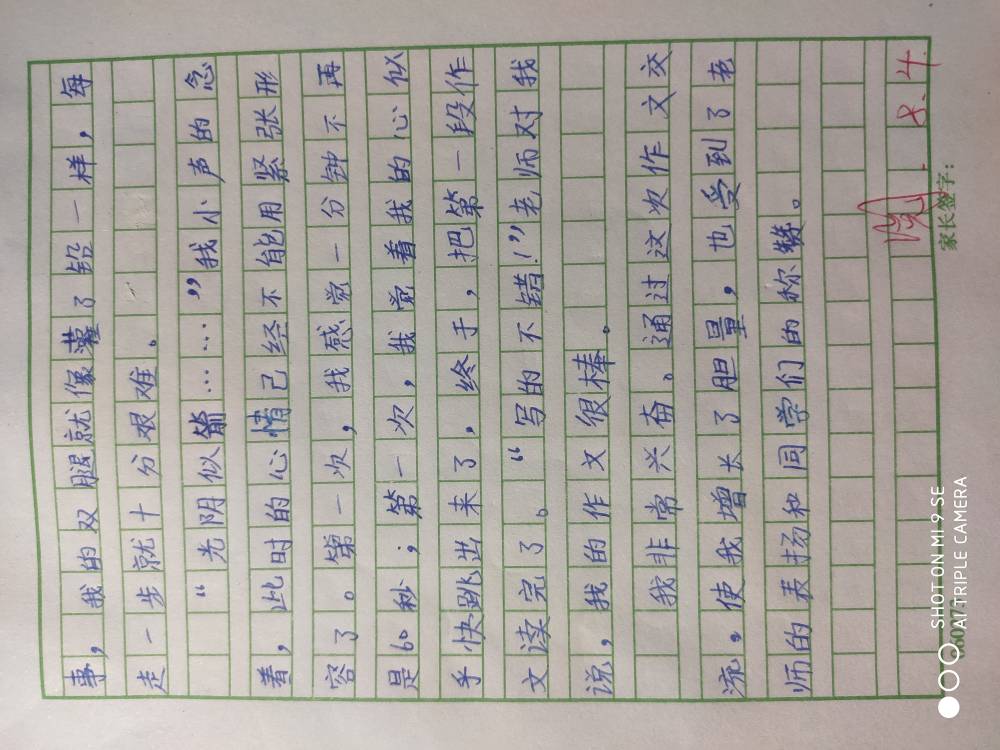 事，我的双腿就像灌了铅一样，每
走一步就十分艰难。
“光阴似箭……”我小声的念
着，此时的心情已经不能用紧张形
容了。第一次，我感觉一分钟不再
是60秒；第一次，我觉着我的心似
乎快跳出来了，终于，把第一段作
文读完了。“写的不错！”老师对我
说，我的作文很棒。
我非常兴奋。通过这次作文交
流，使我增长了胆量，也受到了老
师的表扬和同学们的称赞。
8.4.
家长签字：
SHOT ON MI 9 SE
AI TRIPLE CAMERA